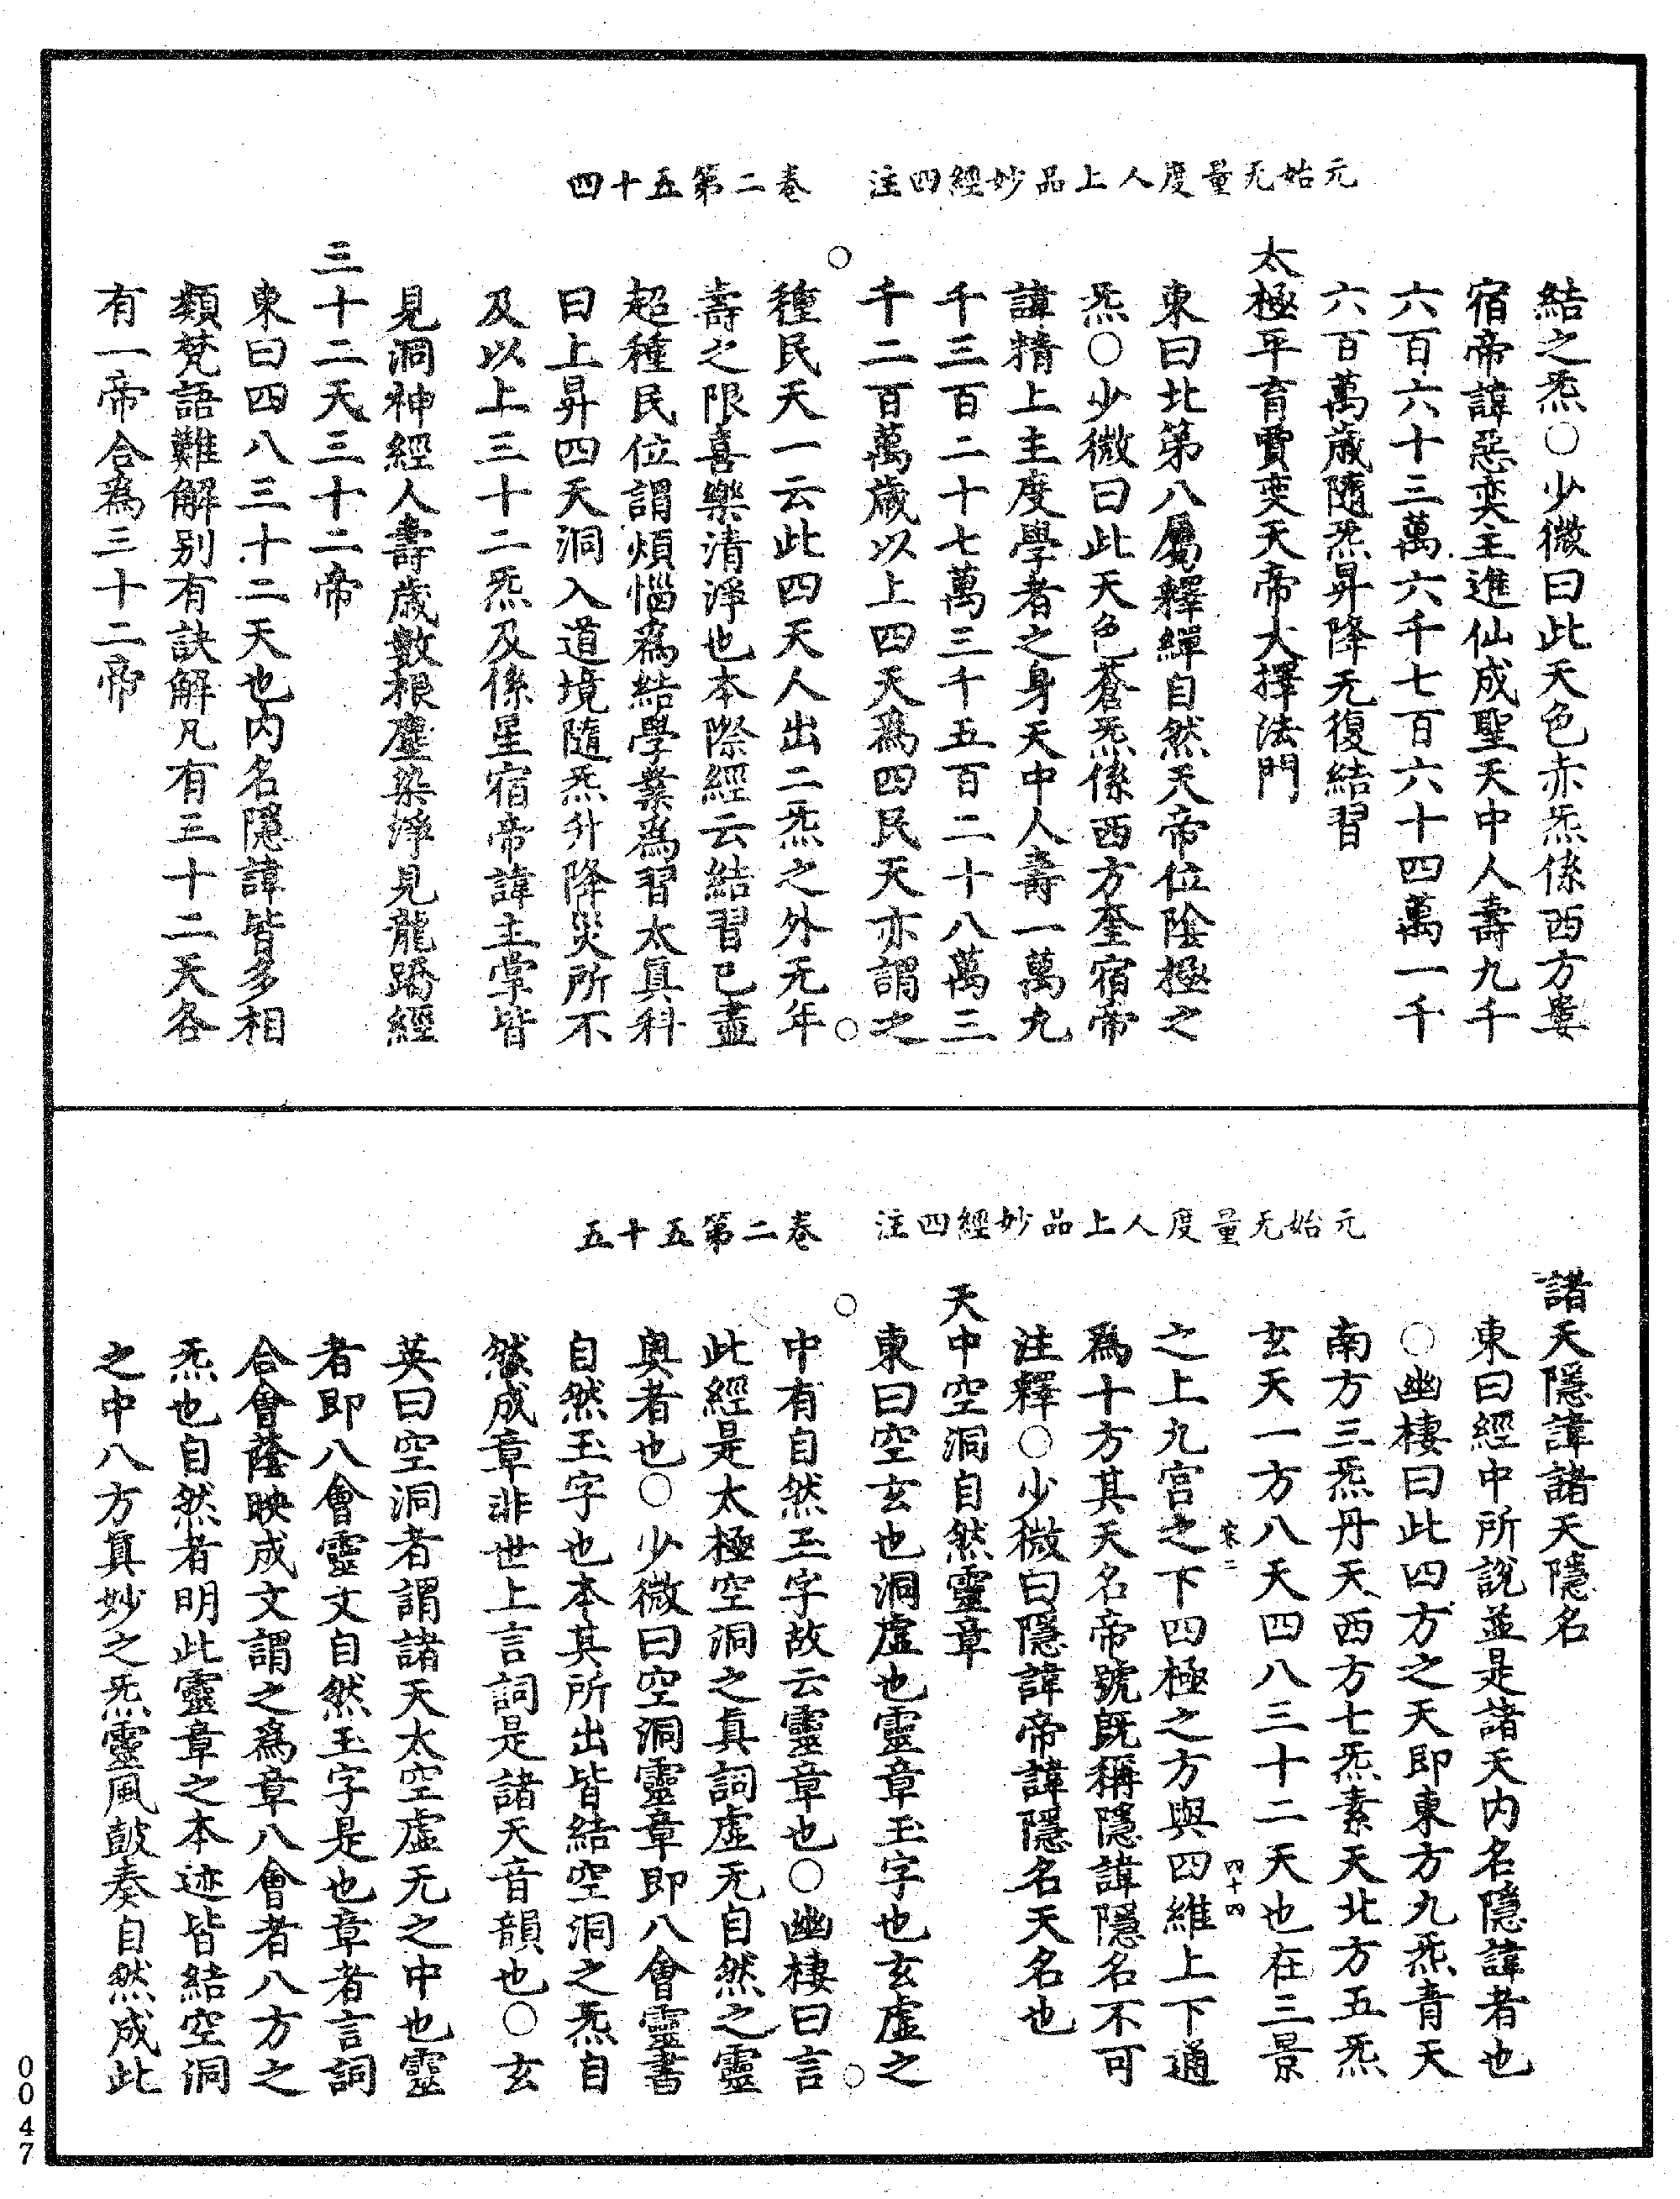 元始无量度人上品妙經四注　卷二第五十四
結之炁○少微曰此天色赤炁係西方婁
宿帝諱惡奕主進仙成聖天中人壽九千
六百六十三萬六千七百六十四萬一千
六百萬歲隨炁昇降无復結習
太極平育賈奕天帝大擇法門
東曰北第八屬釋縸自然天帝位陰極之
炁○少微曰此天色蒼炁係西方奎宿帝
諱精上主度學者之身天中人壽一萬九
千三百二十七萬三千五百二十八萬三
千二百萬歲以上四天爲四民天亦謂之
種民天一云此四天人出二炁之外无年
壽之限喜樂清淨也本際經云結習已盡
超種民位謂煩惱爲結學業爲習太真科
曰上昇四天洞入道境隨炁升降災所不
及以上三十二炁及係星宿帝諱主掌皆
見洞神經人壽歲數根塵染淨見龍蹻經
三十二天三十二帝
東曰四八三十二天也内名隱諱皆多相
類梵語難解别有訣解凡有三十二天各
有一帝合爲三十二帝
元始无量度人上品妙經四注　卷二第五十五
諸天隱諱諸天隱名
東曰經中所說並是諸天内名隱諱者也
○幽棲曰此四方之天即東方九炁青天
南方三炁丹天西方七炁素天北方五炁
玄天一方八天四八三十二天也在三景
宋二　四十四
之上九宫之下四極之方與四維上下通
爲十方其天名帝號既稱隱諱隱名不可
注釋○少微曰隱諱帝諱隱名天名也
天中空洞自然靈章
東曰空玄也洞虛也靈章玉字也玄虛之
中有自然玉字故云靈章也○幽棲曰言
此經是太極空洞之真詞虛无自然之靈
奥者也○少微曰空洞靈章即八會靈書
自然玉字也本其所出皆結空洞之炁自
然成章非世上言詞是諸天音韻也○玄
英曰空洞者謂諸天太空虛无之中也靈
者即八會靈文自然玉字是也章者言詞
合會蔭映成文謂之爲章八會者八方之
炁也自然者明此靈章之本迹皆結空洞
之中八方真妙之炁靈風鼓奏自然成此
0047